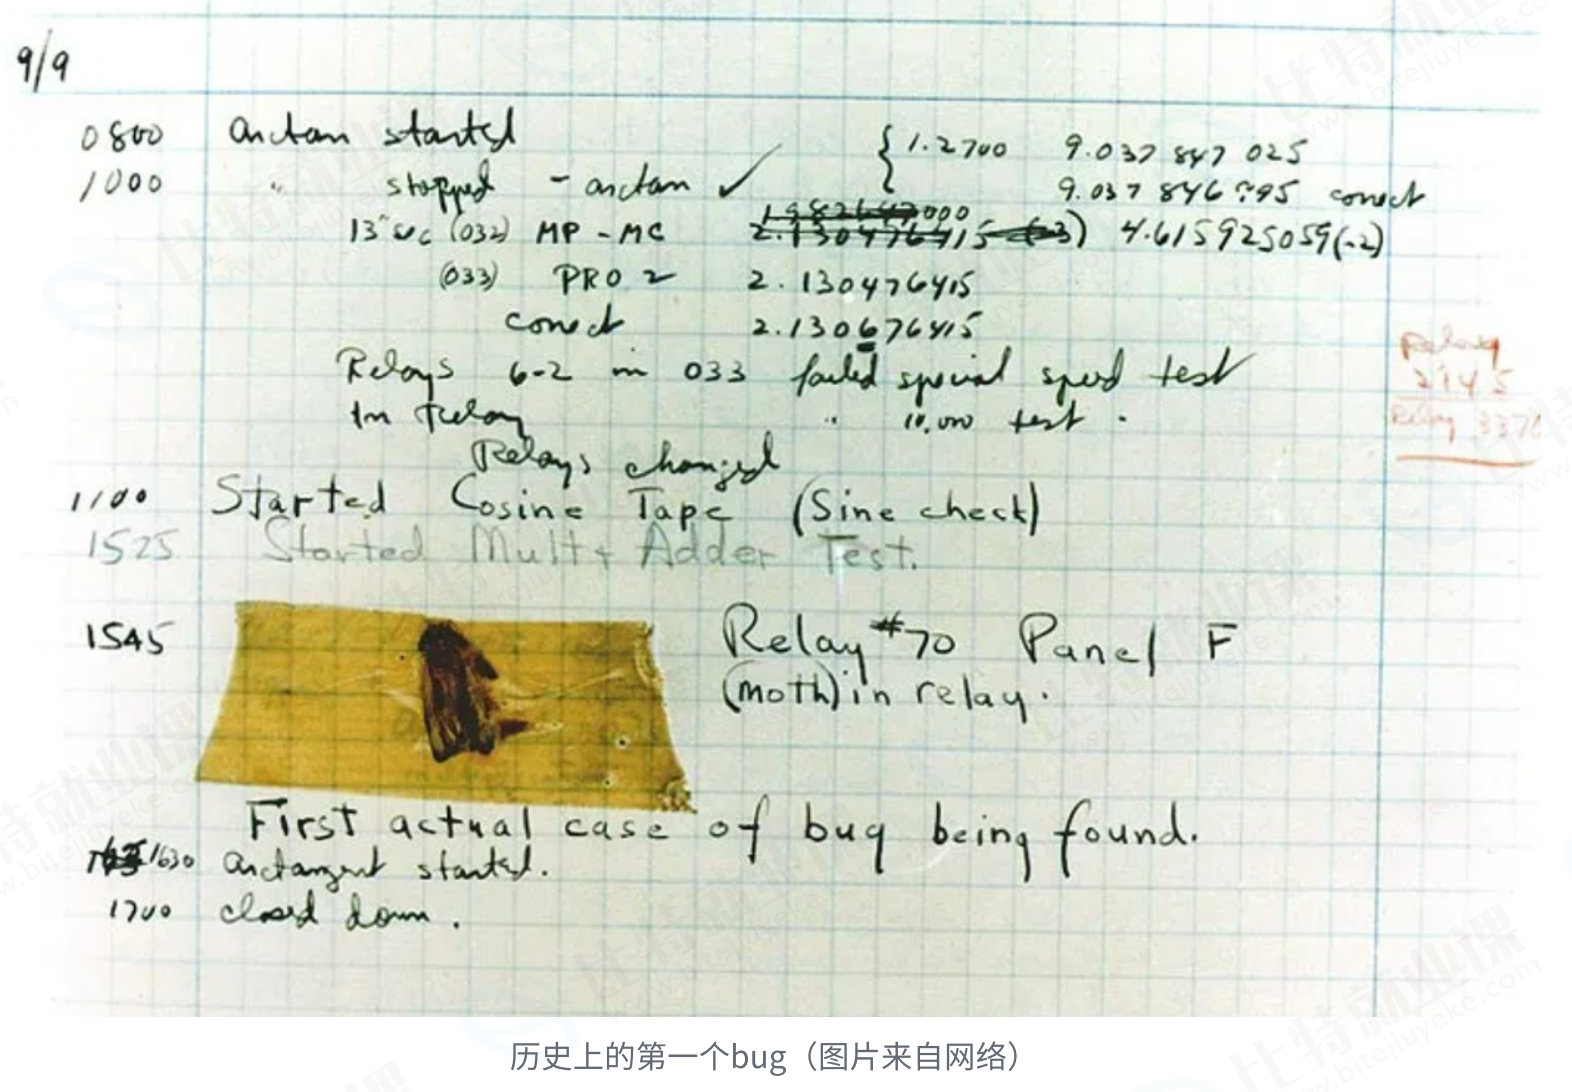 9/9
0800 arctan started { 1.2700 9.037 847 025
1000 " stopped - arctan ✓ 9.037 846 995 correct
1982647000
13" sec (032) MP - MC 2.130476415 (-3) 4.615925059(-2)
(033) PRO 2 2.130476415
correct 2.130676415
Relays 6-2 in 033 failed special speed test
In Relay " 10,000 test .
Relays changed
Relay
2145
Relay 337
1100 Started Cosine Tape (Sine check)
1525 Started Mult + Adder Test.
1545 Relay #70 Panel F
(moth) in relay.
First actual case of bug being found.
1630 arctangent started.
1700 closed down.
历史上的第一个bug（图片来自网络）
比特就业课
www.bitejiuyeke.com